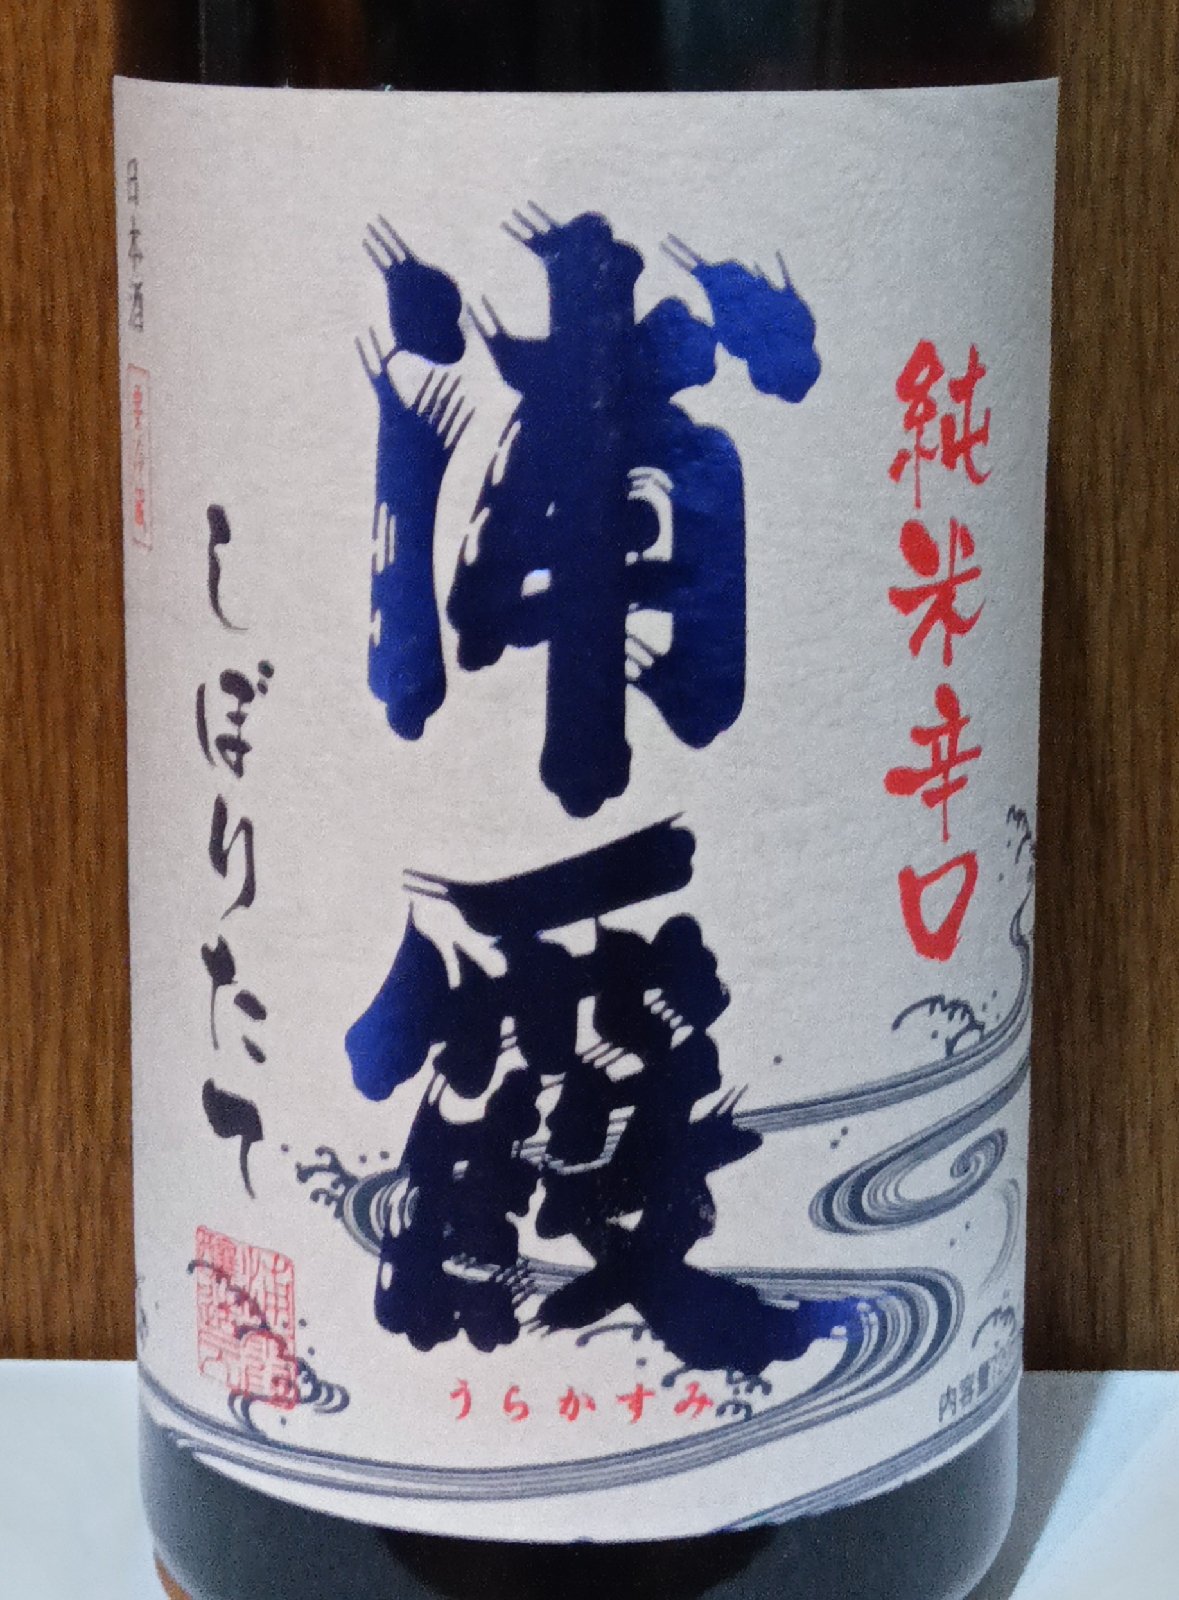 純米辛口
浦霞
うらかすみ
しぼりたて
日本酒
要冷蔵
内容量